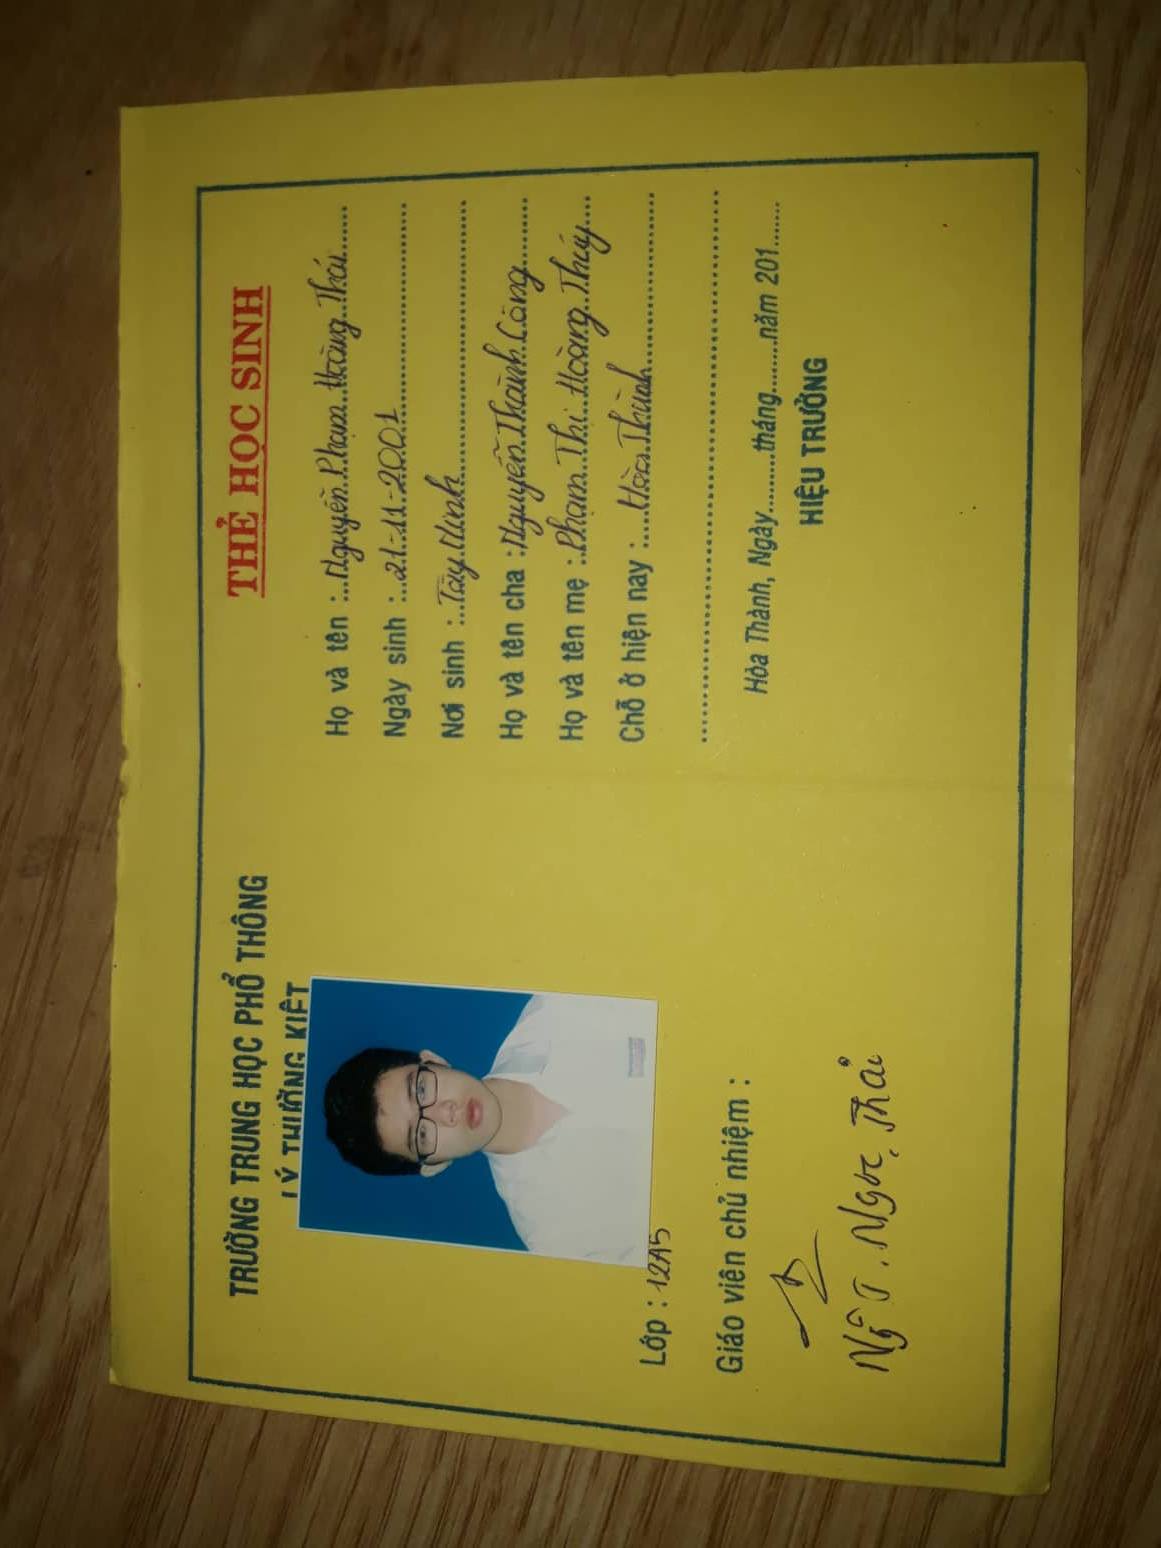 TRƯỜNG TRUNG HỌC PHỔ THÔNG
LÝ THƯỜNG KIỆT
Lớp : 12A5
Giáo viên chủ nhiệm :
Ngô T. Ngọc Thái
THẺ HỌC SINH
Họ và tên : Nguyễn Phạm Hoàng Thái
Ngày sinh : 21-11-2001
Nơi sinh : Tây Ninh
Họ và tên cha : Nguyễn Thành Công
Họ và tên mẹ : Phạm Thị Hoàng Thúy
Chỗ ở hiện nay : Hòa Thành
Hòa Thành, Ngày.........tháng.........năm 201.......
HIỆU TRƯỞNG